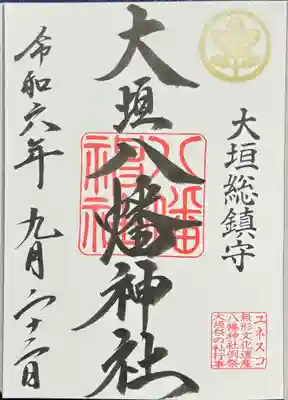 大垣総鎮守
大垣八幡神社
八幡
神社
令和六年 九月二十二日
ユネスコ
無形文化遺産
八幡神社例祭
大垣祭の軕行事